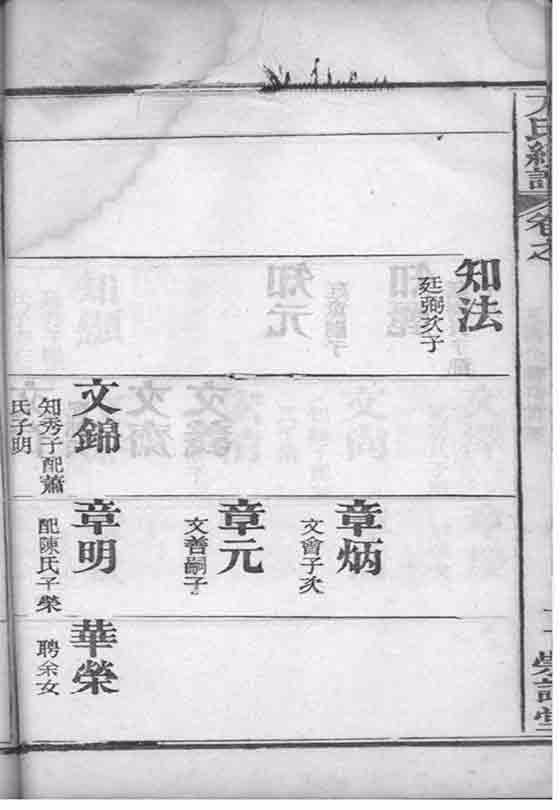 氏續譜
卷之
知法
廷弼次子
文錦
知秀子配蕭
氏子明
章炳
文會子次
章元
文善嗣子
章明
配陳氏子榮
華榮
聘余女